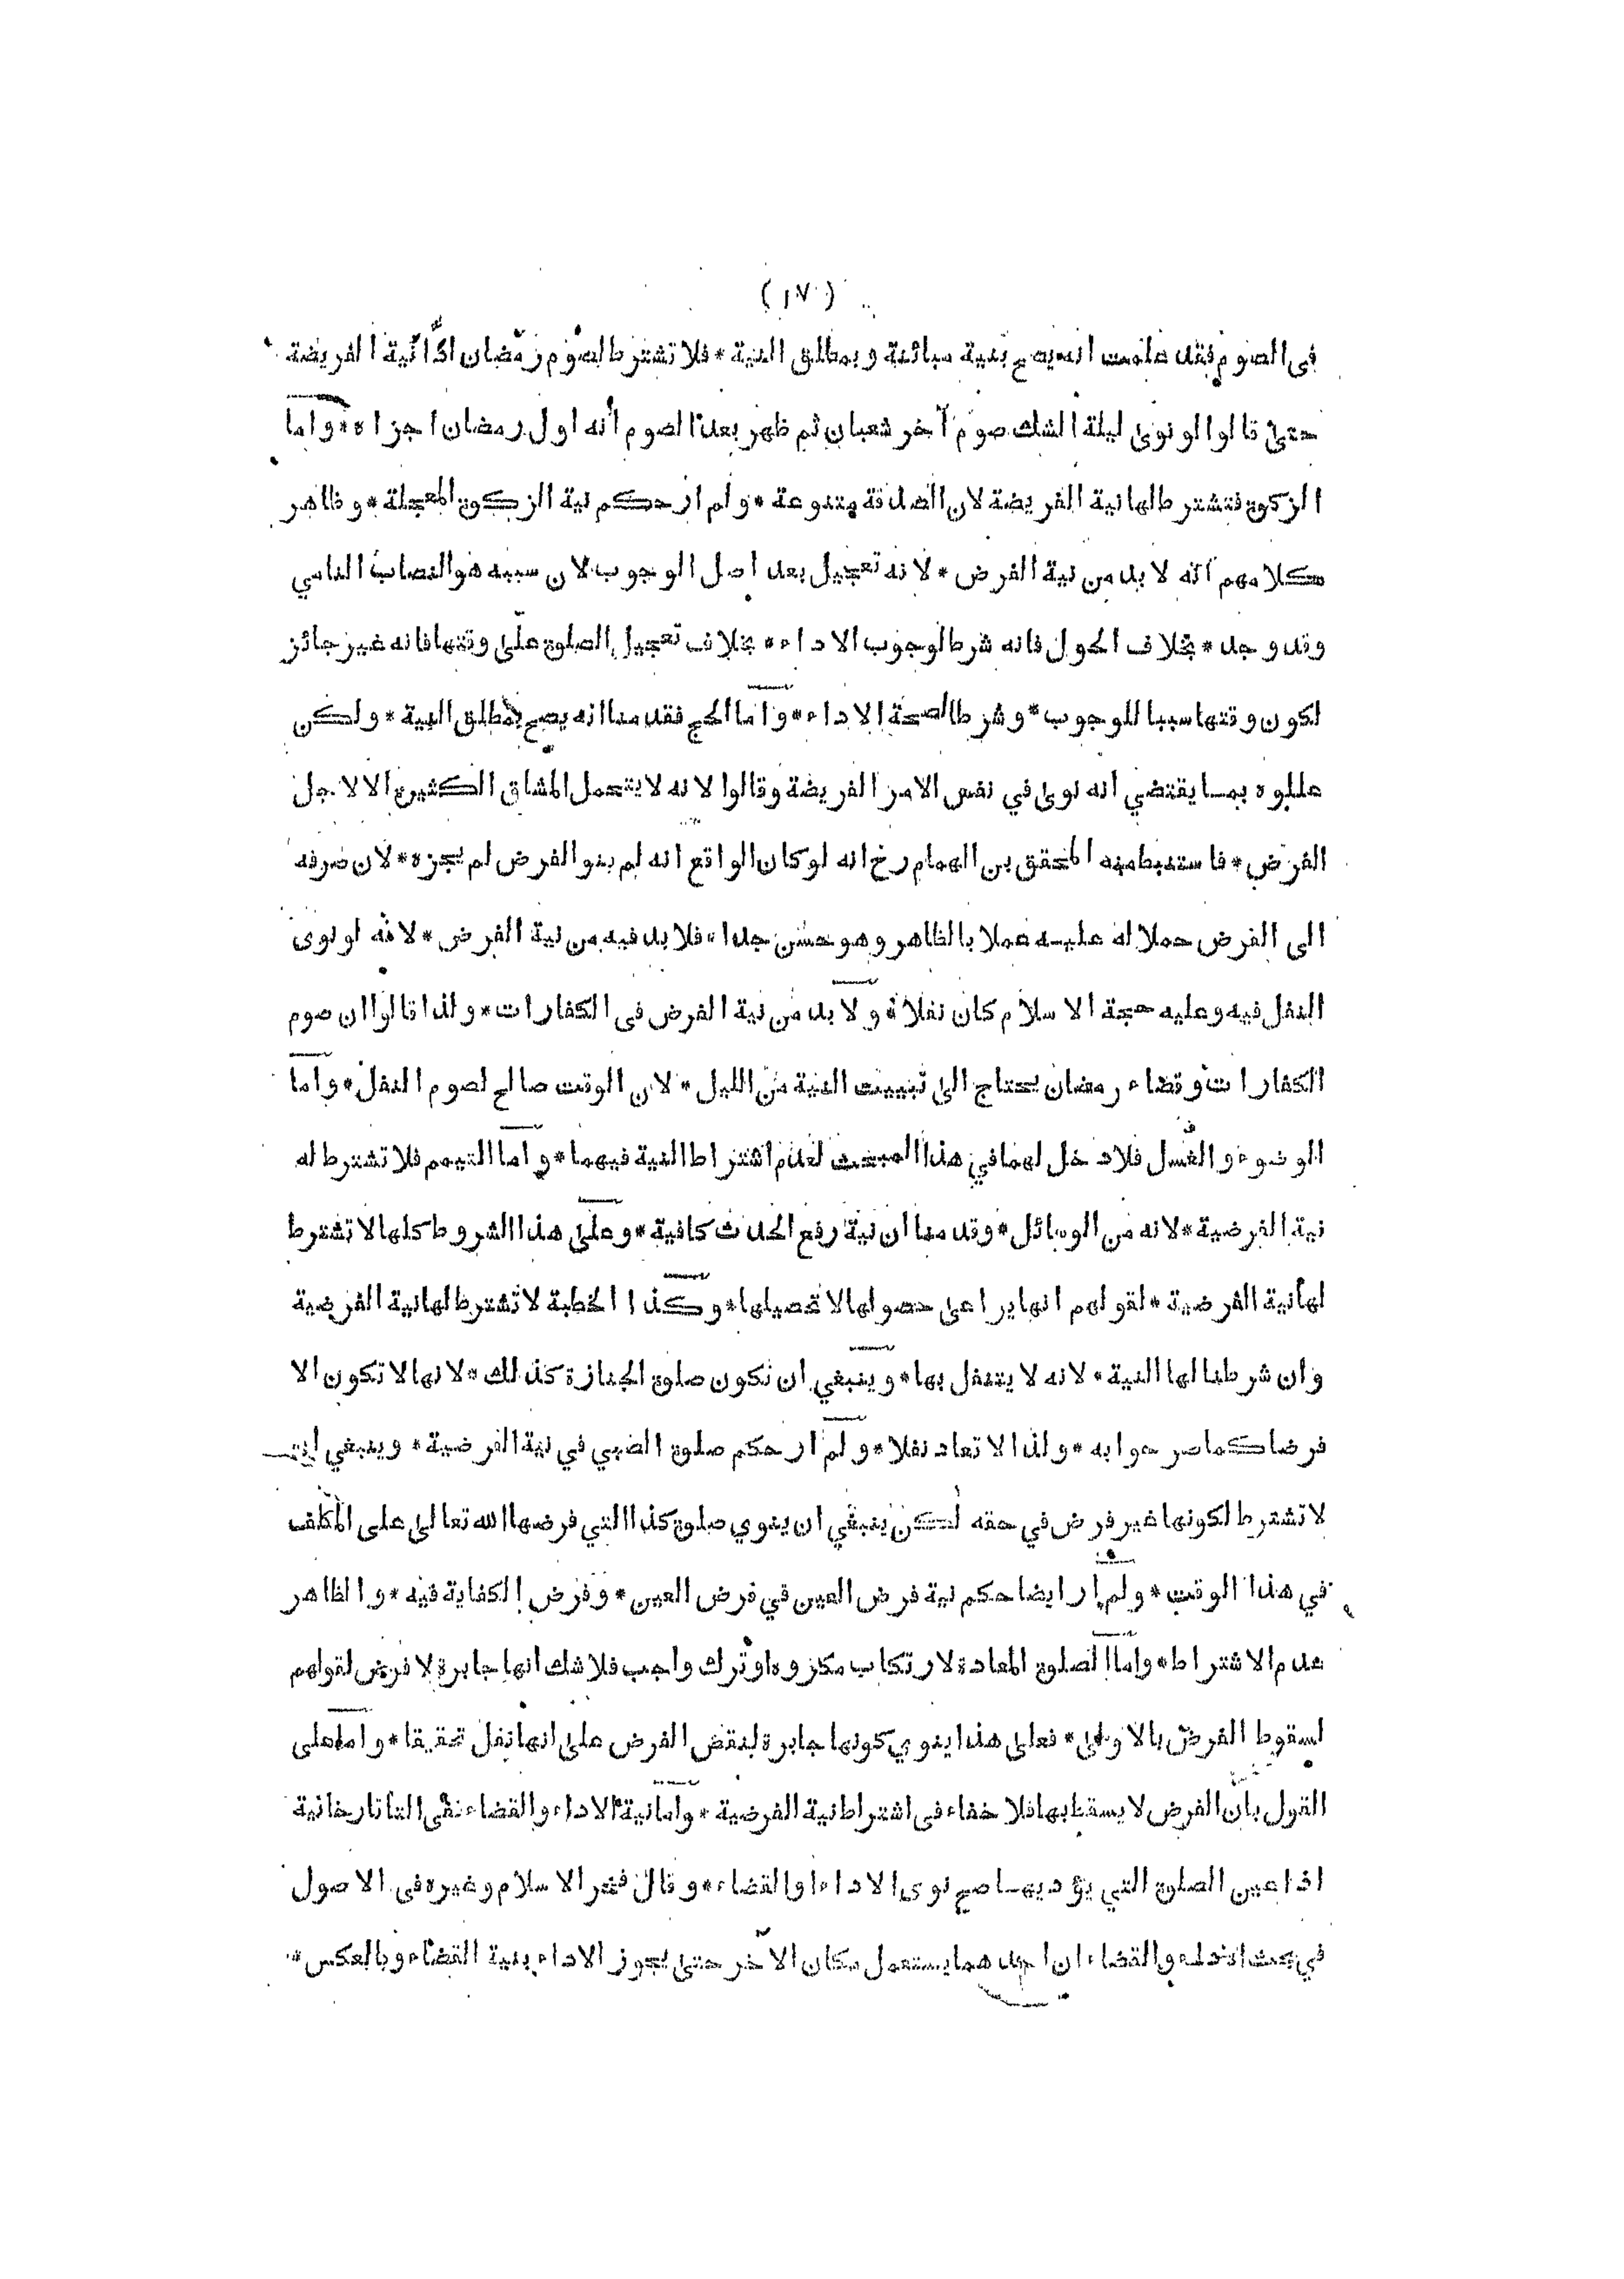 (١٧)
فى الصوم فقد علمت انه يصح بنية مبائنة وبمطلق النية * فلا تشترط لصوم رمضان اداً نية الفريضة
حتى قالوا لو نوى ليلة الشك صوم آخر شعبان ثم ظهر بعد الصوم أنه اول رمضان اجزاه * واما
الزكوة فتشترط لها نية الفريضة لان الصدقة متنوعة * ولم ار حكم نية الزكوة المعجلة * وظاهر
كلامهم انّه لا بد من نية الفرض * لانه تعجيل بعد اصل الوجوب لان سببه هو النصاب النامي
وقد وجد * بخلاف الحول فانه شرط لوجوب الاداء * بخلاف تعجيل الصلوة على وقتها فانه غير جائز
لكون وقتها سببا للوجوب * وشرطا لصحة الاداء * واما الحج فقد منا انه يصح بمطلق النية * ولكن
عللوه بما يقتضي انه نوى في نفس الامر الفريضة وقالوا لانه لا يتحمل المشاق الكثيرة الا لاجل
الفرض * فاستنبط منه المحقق بن الهمام رح انه لو كان الواقع انه لم ينو الفرض لم يجزه * لان صرفه
الى الفرض حملا له عليه عملا بالظاهر وهو حسن جدا * فلا بد فيه من نية الفرض * لانه لو نوى
النفل فيه وعليه حجة الاسلام كان نفلا * ولا بد من نية الفرض فى الكفارات * ولذا قالوا ان صوم
الكفارات وقضاء رمضان يحتاج الى تبييت النية من الليل * لان الوقت صالح لصوم النفل * واما
الوضوء والغسل فلا دخل لهما في هذا المبحث لعدم اشتراط النية فيهما * واما التيمم فلا تشترط له
نية الفرضية * لانه من الوسائل * وقد منا ان نية رفع الحدث كافية * وعلى هذا الشروط كلها لا تشترط
لها نية الفرضية * لقولهم انها يراعى حصولها لا تحصيلها * وكذا الخطبة لا تشترط لها نية الفرضية
وان شرطنا لها النية * لانه لا يتنفل بها * وينبغي ان تكون صلوة الجنازة كذلك * لانها لا تكون الا
فرضا كما صرحوا به * ولذا لا تعاد نفلا * ولم ار حكم صلوة الصبي في نية الفرضية * وينبغي ان
لا تشترط لكونها غير فرض في حقه لكن ينبغي ان ينوي صلوة كذا التي فرضها الله تعالى على المكلف
في هذا الوقت * ولم ار ايضا حكم نية فرض العين في فرض العين * وفرض الكفاية فيه * والظاهر
عدم الاشتراط * واما الصلوة المعادة لارتكاب مكروه او ترك واجب فلا شك انها جابرة لا فرض لقولهم
لسقوط الفرض بالاولى * فعلى هذا ينوي كونها جابرة لنقض الفرض على انها نفل تحقيقا * واما على
القول بان الفرض لا يسقط بها فلا خفاء فى اشتراط نية الفرضية * واما نية الاداء والقضاء ففى التاتارخانية
اذا عين الصلوة التي يؤديها صح نوى الاداء او القضاء * وقال فخر الاسلام وغيره فى الاصول
في بحث الاداء والقضاء ان احدهما يستعمل مكان الاخر حتى يجوز الاداء بنية القضاء وبالعكس *